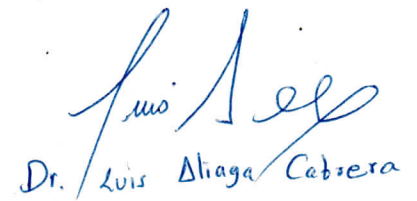 Luis A
Dr. Luis Aliaga Cabrera